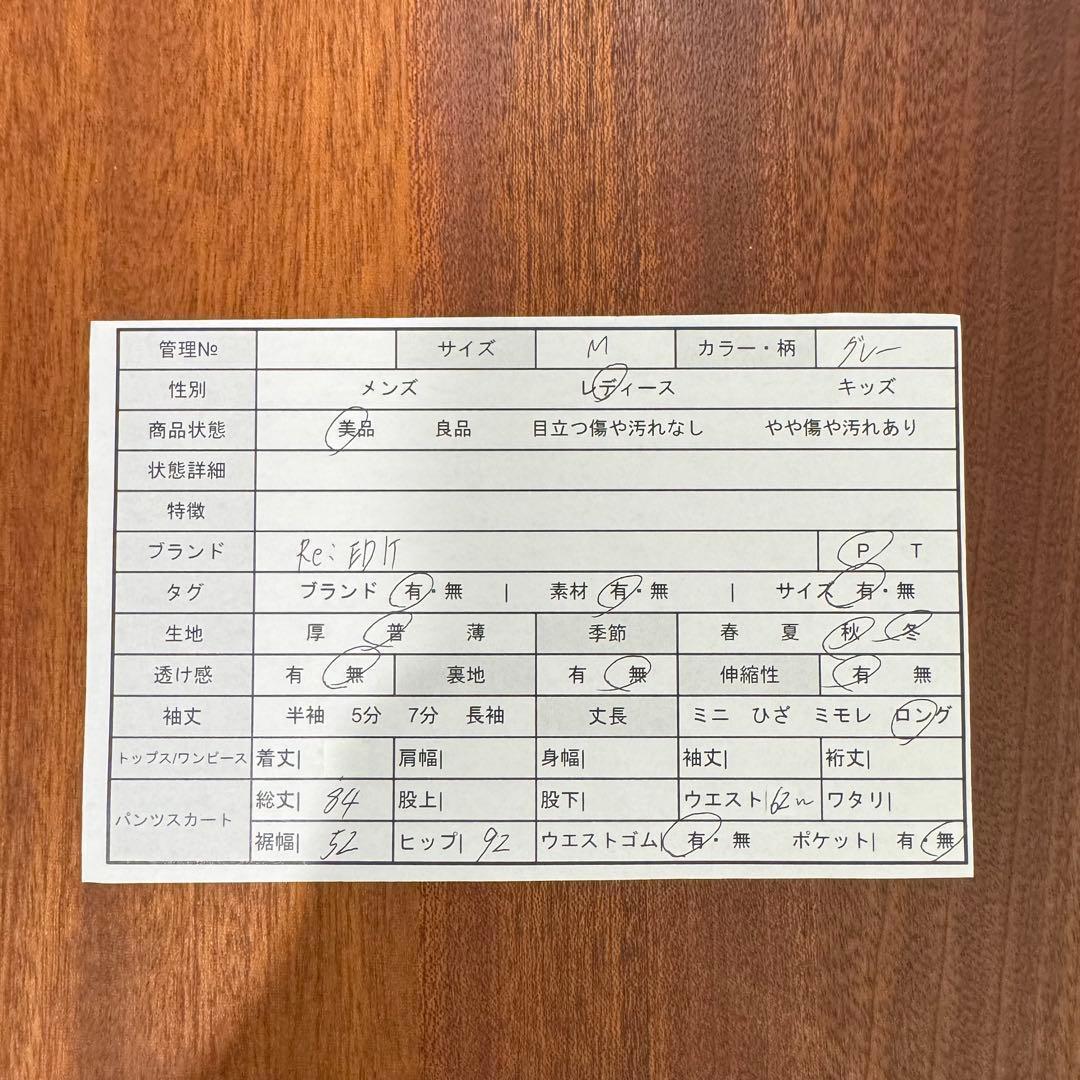 管理№ サイズ M カラー・柄 グレー
性別 メンズ レディース キッズ
商品状態 美品 良品 目立つ傷や汚れなし やや傷や汚れあり
状態詳細
特徴
ブランド Re:EDIT P T
タグ ブランド 有・無 | 素材 有・無 | サイズ 有・無
生地 厚 普 薄 季節 春 夏 秋 冬
透け感 有 無 裏地 有 無 伸縮性 有 無
袖丈 半袖 5分 7分 長袖 丈長 ミニ ひざ ミモレ ロング
トップス/ワンピース 着丈| 肩幅| 身幅| 袖丈| 裄丈|
パンツスカート 総丈| 84 股上| 股下| ウエスト| 62~ ワタリ|
裾幅| 52 ヒップ| 92 ウエストゴム| 有・無 ポケット| 有・無